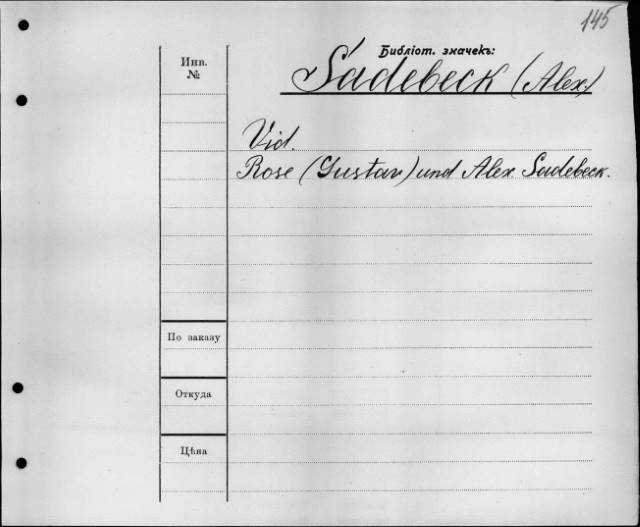 145
Библіот. значекъ:
Инв.
№
Sadebeck (Alex.)
Vid.
Rose (Gustav) und Alex. Sadebeck.
По заказу
Откуда
Цѣна